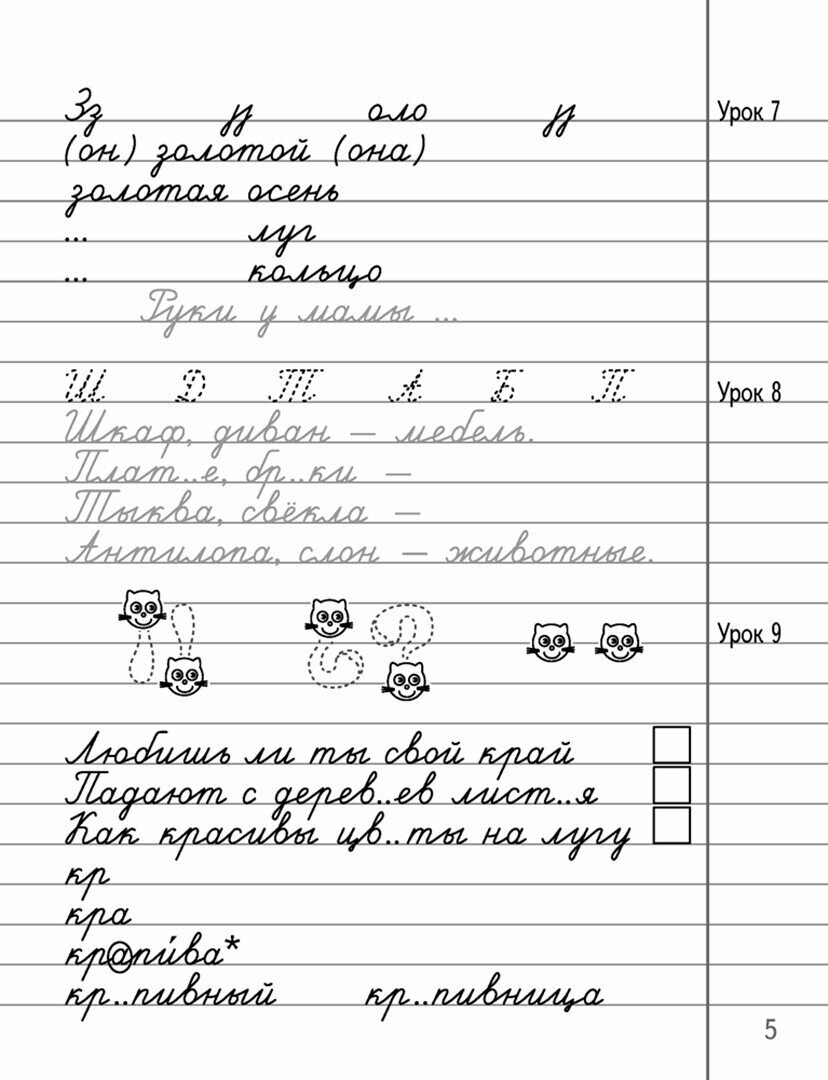 Зз зз оло з Урок 7
(он) золотой (она)
золотая осень
... луг
... кольцо
Руки у мамы ...
Ш Д Т А Б П Урок 8
Шкаф, диван – мебель.
Плат..е, бр..ки –
Тыква, свёкла –
Антилопа, слон – животные.
Урок 9
Любишь ли ты свой край
Падают с дерев..ев лист..я
Как красивы цв..ты на лугу
кр
кра
крапи́ва*
кр..пивный кр..пивница
5